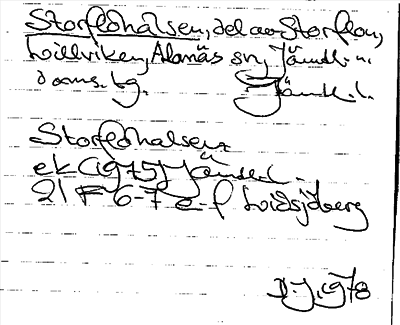 Storflohalsen, del av Storflon,
Lillviken, Alanäs sn, Jämtl:s
doms. tg. Jämtl. l.
Storflohalsen
ek (1975) Jämtl. l.
21 F 6-7 e-f Lidsjöberg
1978